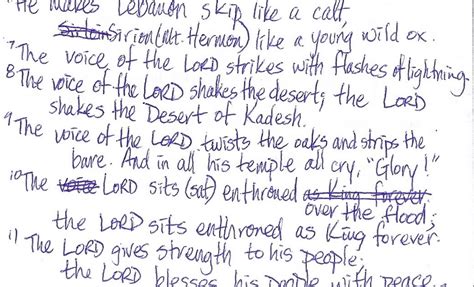 He makes Lebanon skip like a calf,
Sirion (Mt. Hermon) like a young wild ox.
7 The voice of the LORD strikes with flashes of lightning.
8 The voice of the LORD shakes the desert; the LORD
shakes the Desert of Kadesh.
9 The voice of the LORD twists the oaks and strips the
bare. And in all his temple all cry, "Glory!"
10 The voice LORD sits (sat) enthroned as King forever.
over the flood;
the LORD sits enthroned as King forever.
11 The LORD gives strength to his people;
the LORD blesses his people with peace.